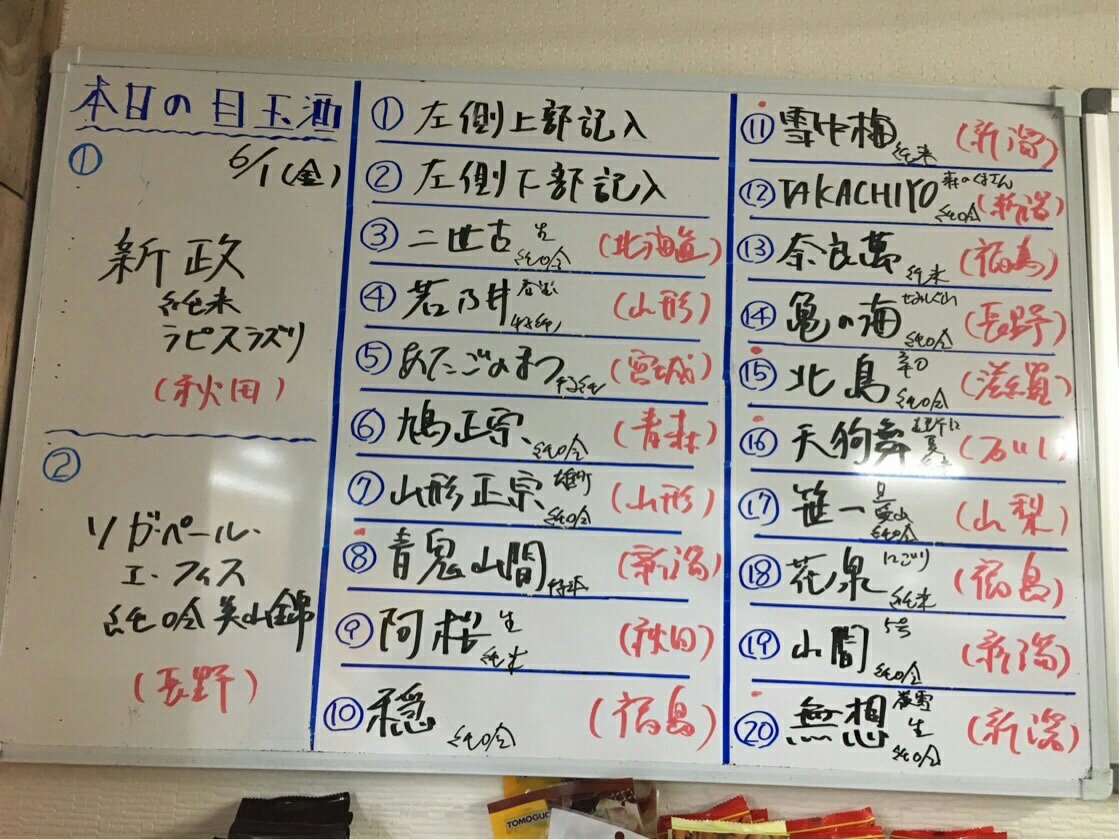 本日の目玉酒
① 6/1(金)
新政
純米
ラピスラズリ
(秋田)
②
ソガ・ペール・
エ・フィス
純吟 美山錦
(長野)
① 左側上部記入
② 左側下部記入
③ 二世古 生 純吟 (北海道)
④ 若乃井 特純 (山形)
⑤ あたごのまつ 特純 (宮城)
⑥ 鳩正宗 純吟 (青森)
⑦ 山形正宗 雄町 純吟 (山形)
⑧ 青鬼山間 特本 (新潟)
⑨ 阿桜 生 純米 (秋田)
⑩ 穏 純吟 (福島)
⑪ 雪中梅 純米 (新潟)
⑫ TAKACHIYO 森のくまさん 純吟 (新潟)
⑬ 奈良萬 純米 (福島)
⑭ 亀の海 せみしぐれ 純吟 (長野)
⑮ 北島 辛口 純吟 (滋賀)
⑯ 天狗舞 夏 (石川)
⑰ 笹一 純吟 (山梨)
⑱ 花泉 にごり 純米 (福島)
⑲ 山間 5号 純吟 (新潟)
⑳ 無想 生 純吟 (新潟)
TOMOGUC